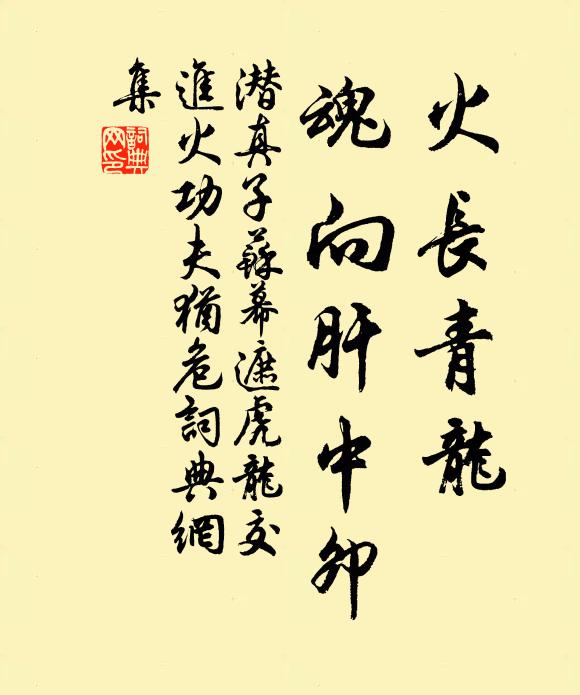 火長青龍
魂向肝中卯
潜真子蘇幕遮虎龍交
進火功夫猶危詞典網
集
詞典网印